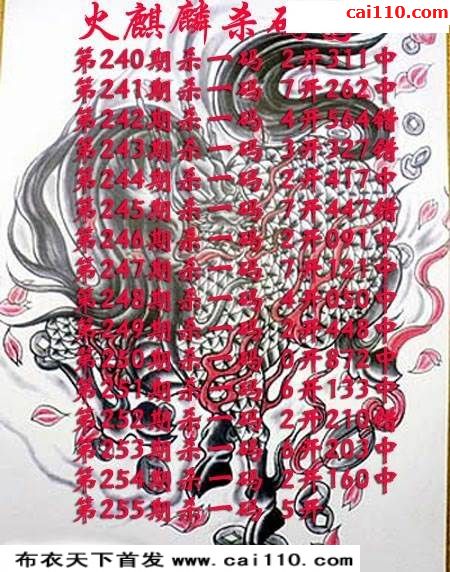 cai110.com
火麒麟杀码
第240期杀一码 2开311中
第241期杀一码 7开262中
第242期杀一码 4开564错
第243期杀一码 3开327错
第244期杀一码 2开417中
第245期杀一码 7开447错
第246期杀一码 2开091中
第247期杀一码 7开121中
第248期杀一码 4开050中
第249期杀一码 2开448中
第250期杀一码 0开872中
第251期杀一码 6开133中
第252期杀一码 2开210错
第253期杀一码 6开203中
第254期杀一码 2开160中
第255期杀一码 5开
布衣天下首发 www.cai110.com